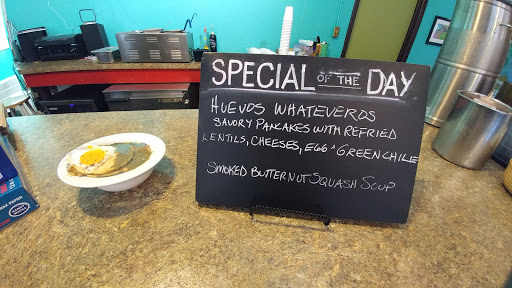 SPECIAL OF THE DAY
HUEVOS WHATEVEROS
SAVORY PANCAKES WITH REFRIED
LENTILS, CHEESES, EGG + GREEN CHILE
SMOKED BUTTERNUT SQUASH SOUP